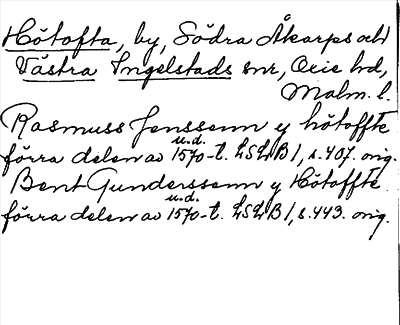 Hötofta, by, Södra Åkarps och
Västra Ingelstads snr, Oxie hd,
Malm. l.
Rasmuss Jenssenn y hötoffte
u.d.
förra delen av 1570-t. LSLB 1, s. 407. orig.
Bent Gunderssenn y Hötoffte
u.d.
förra delen av 1570-t. LSLB 1, s. 443. orig.